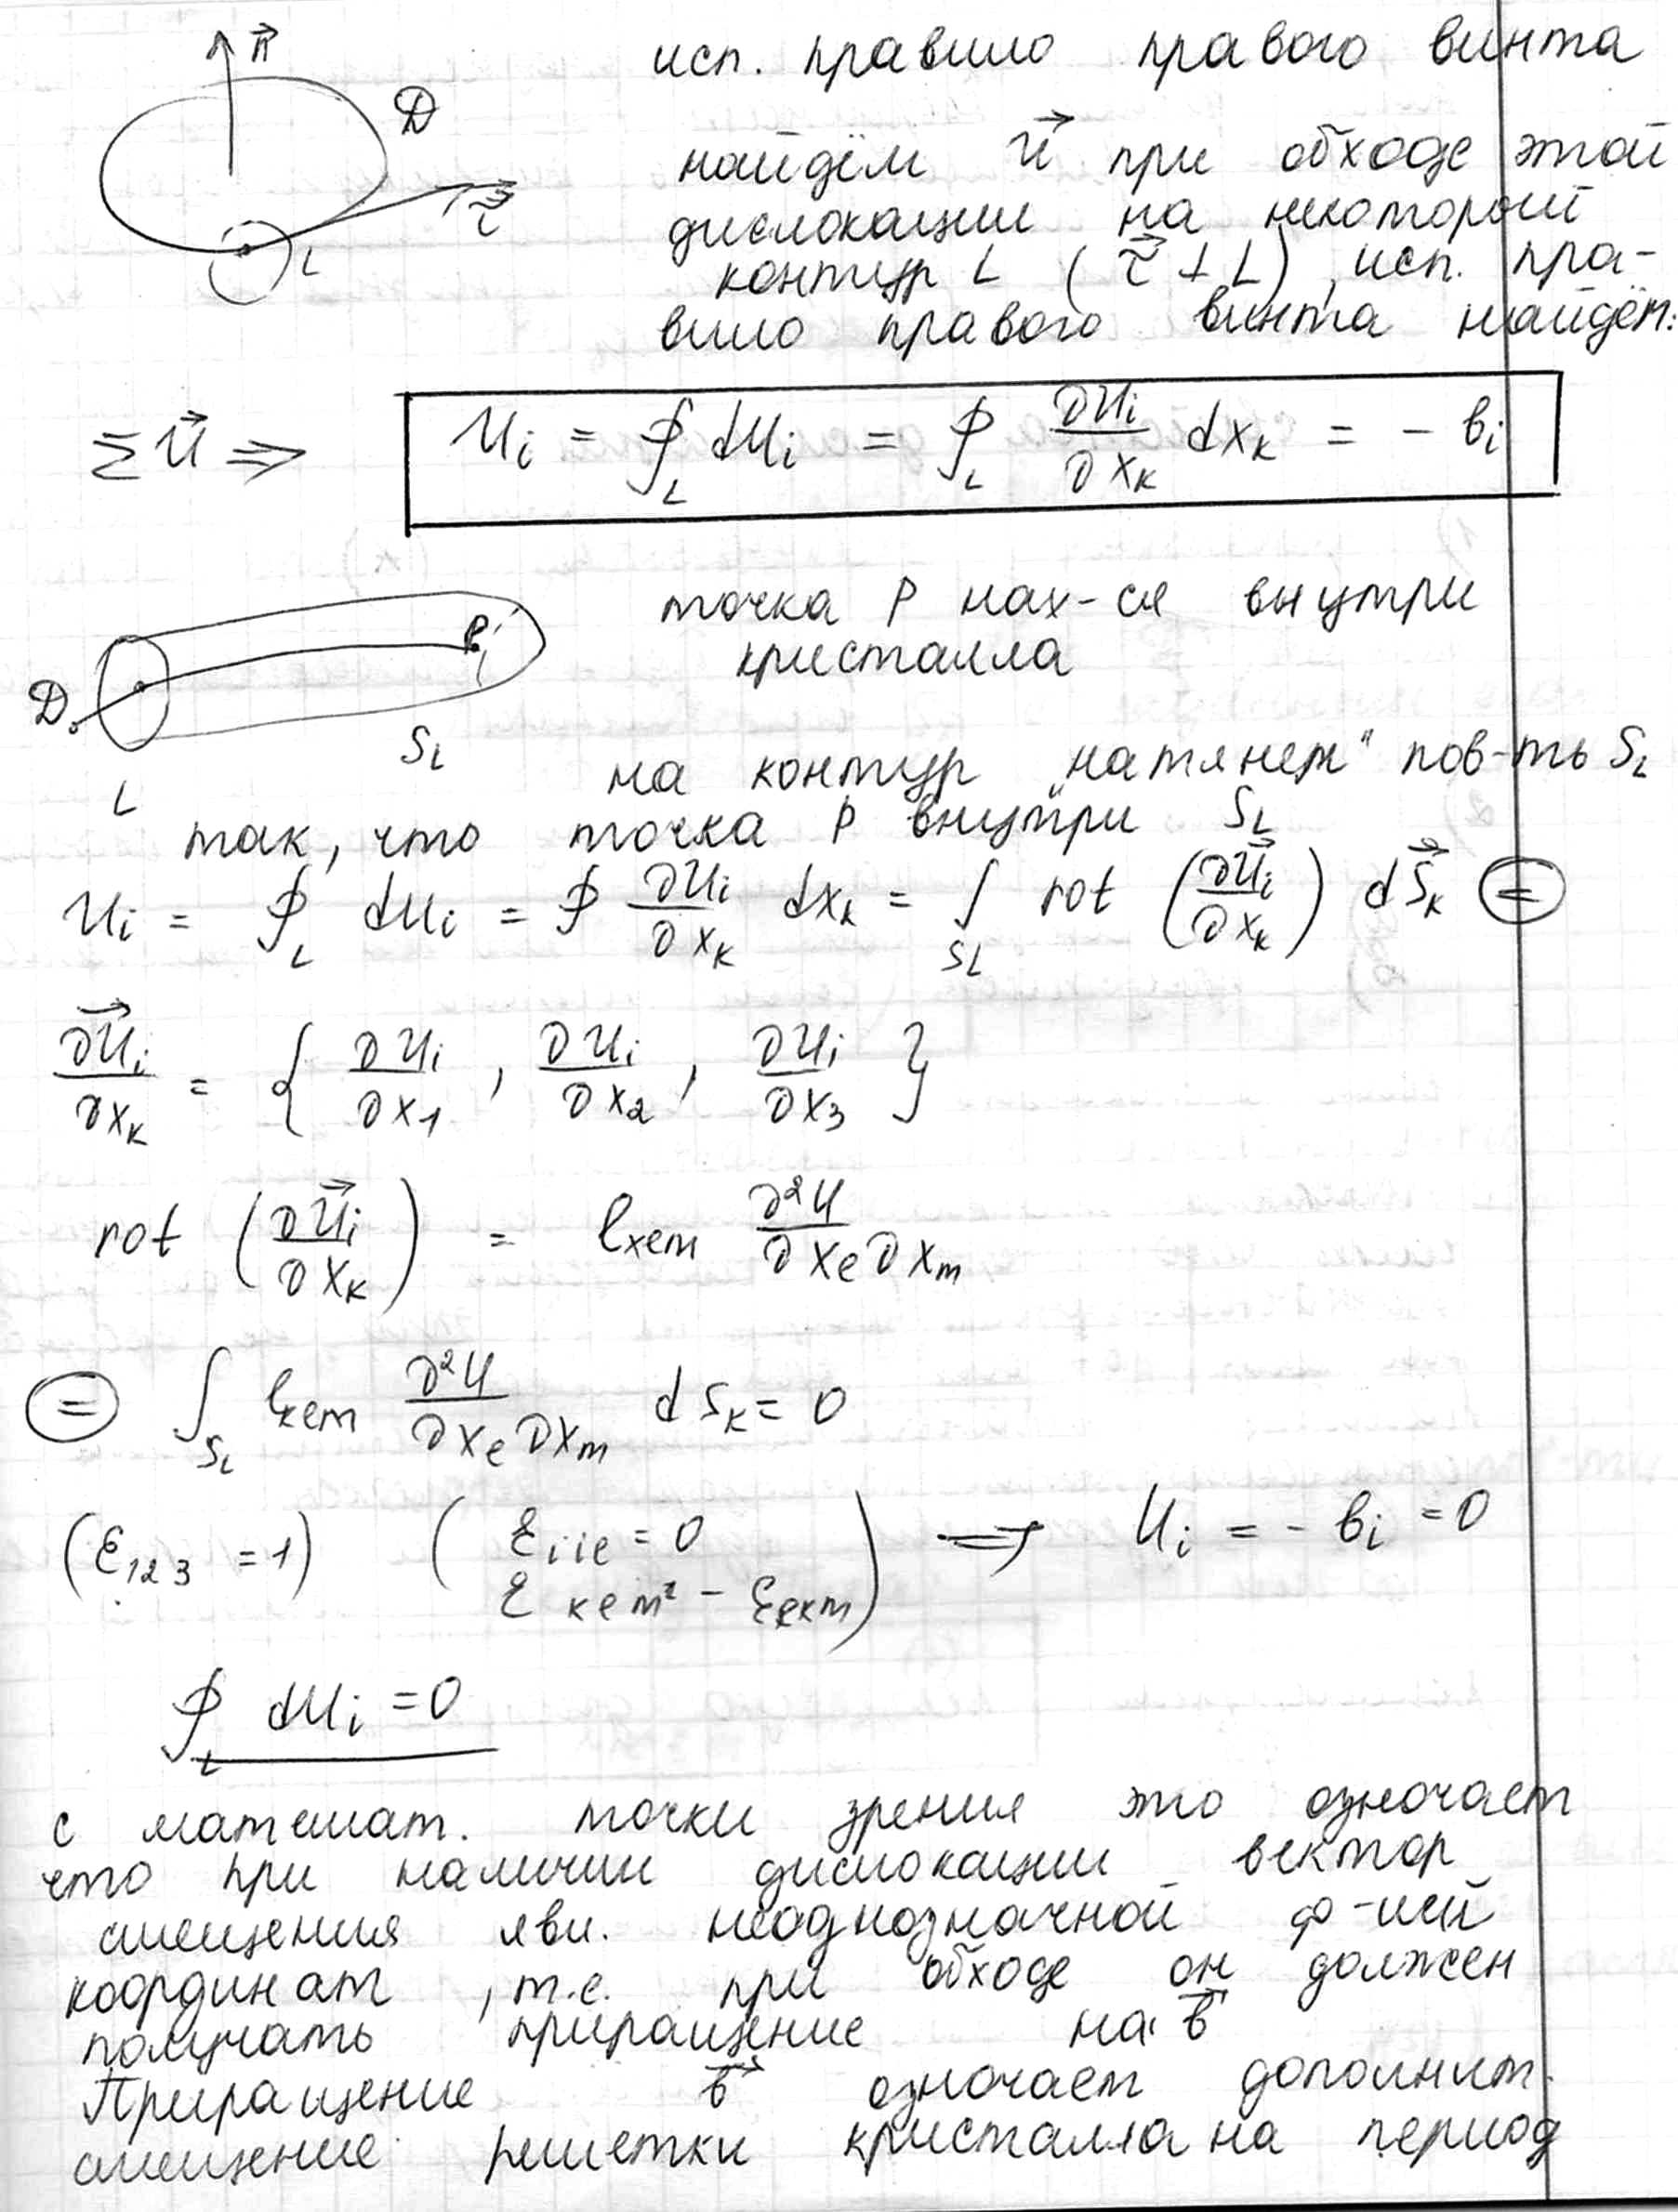 n⃗
D
τ⃗
L
исп. правило правого винта
найдём u⃗ при обходе этой
дислокации на некоторый
контур L (τ⃗ ⊥ L), исп. пра-
вило правого винта найдём:
Σ u⃗ ⇒ Uᵢ = ∮_L dUᵢ = ∮_L ∂Uᵢ/∂xₖ dxₖ = - bᵢ
D
P
S_L
L
точка P нах-ся внутри
кристалла
на контур „натянем" пов-ть S_L
так, что точка P внутри S_L
Uᵢ = ∮_L dUᵢ = ∮ ∂Uᵢ/∂xₖ dxₖ = ∫_{S_L} rot (∂U⃗ᵢ/∂xₖ) dS⃗ₖ ⊜
∂U⃗ᵢ/∂xₖ = { ∂Uᵢ/∂x₁ , ∂Uᵢ/∂x₂ , ∂Uᵢ/∂x₃ }
rot (∂U⃗ᵢ/∂xₖ) = e_{kem} ∂²U/∂x_e∂x_m
⊜ ∫_{S_L} e_{kem} ∂²U/∂x_e∂x_m dSₖ = 0
(ε₁₂₃ = 1) (ε_{iie} = 0
ε_{kem} = - ε_{ekm}) ⟹ Uᵢ = - bᵢ = 0
∮_L dUᵢ = 0
с математ. точки зрения это означает
что при наличии дислокации вектор
смещения явл. неоднозначной ф-ией
координат , т.е. при обходе он должен
получать приращение на b⃗
Приращение b⃗ означает дополнит.
смещение решетки кристалла на период